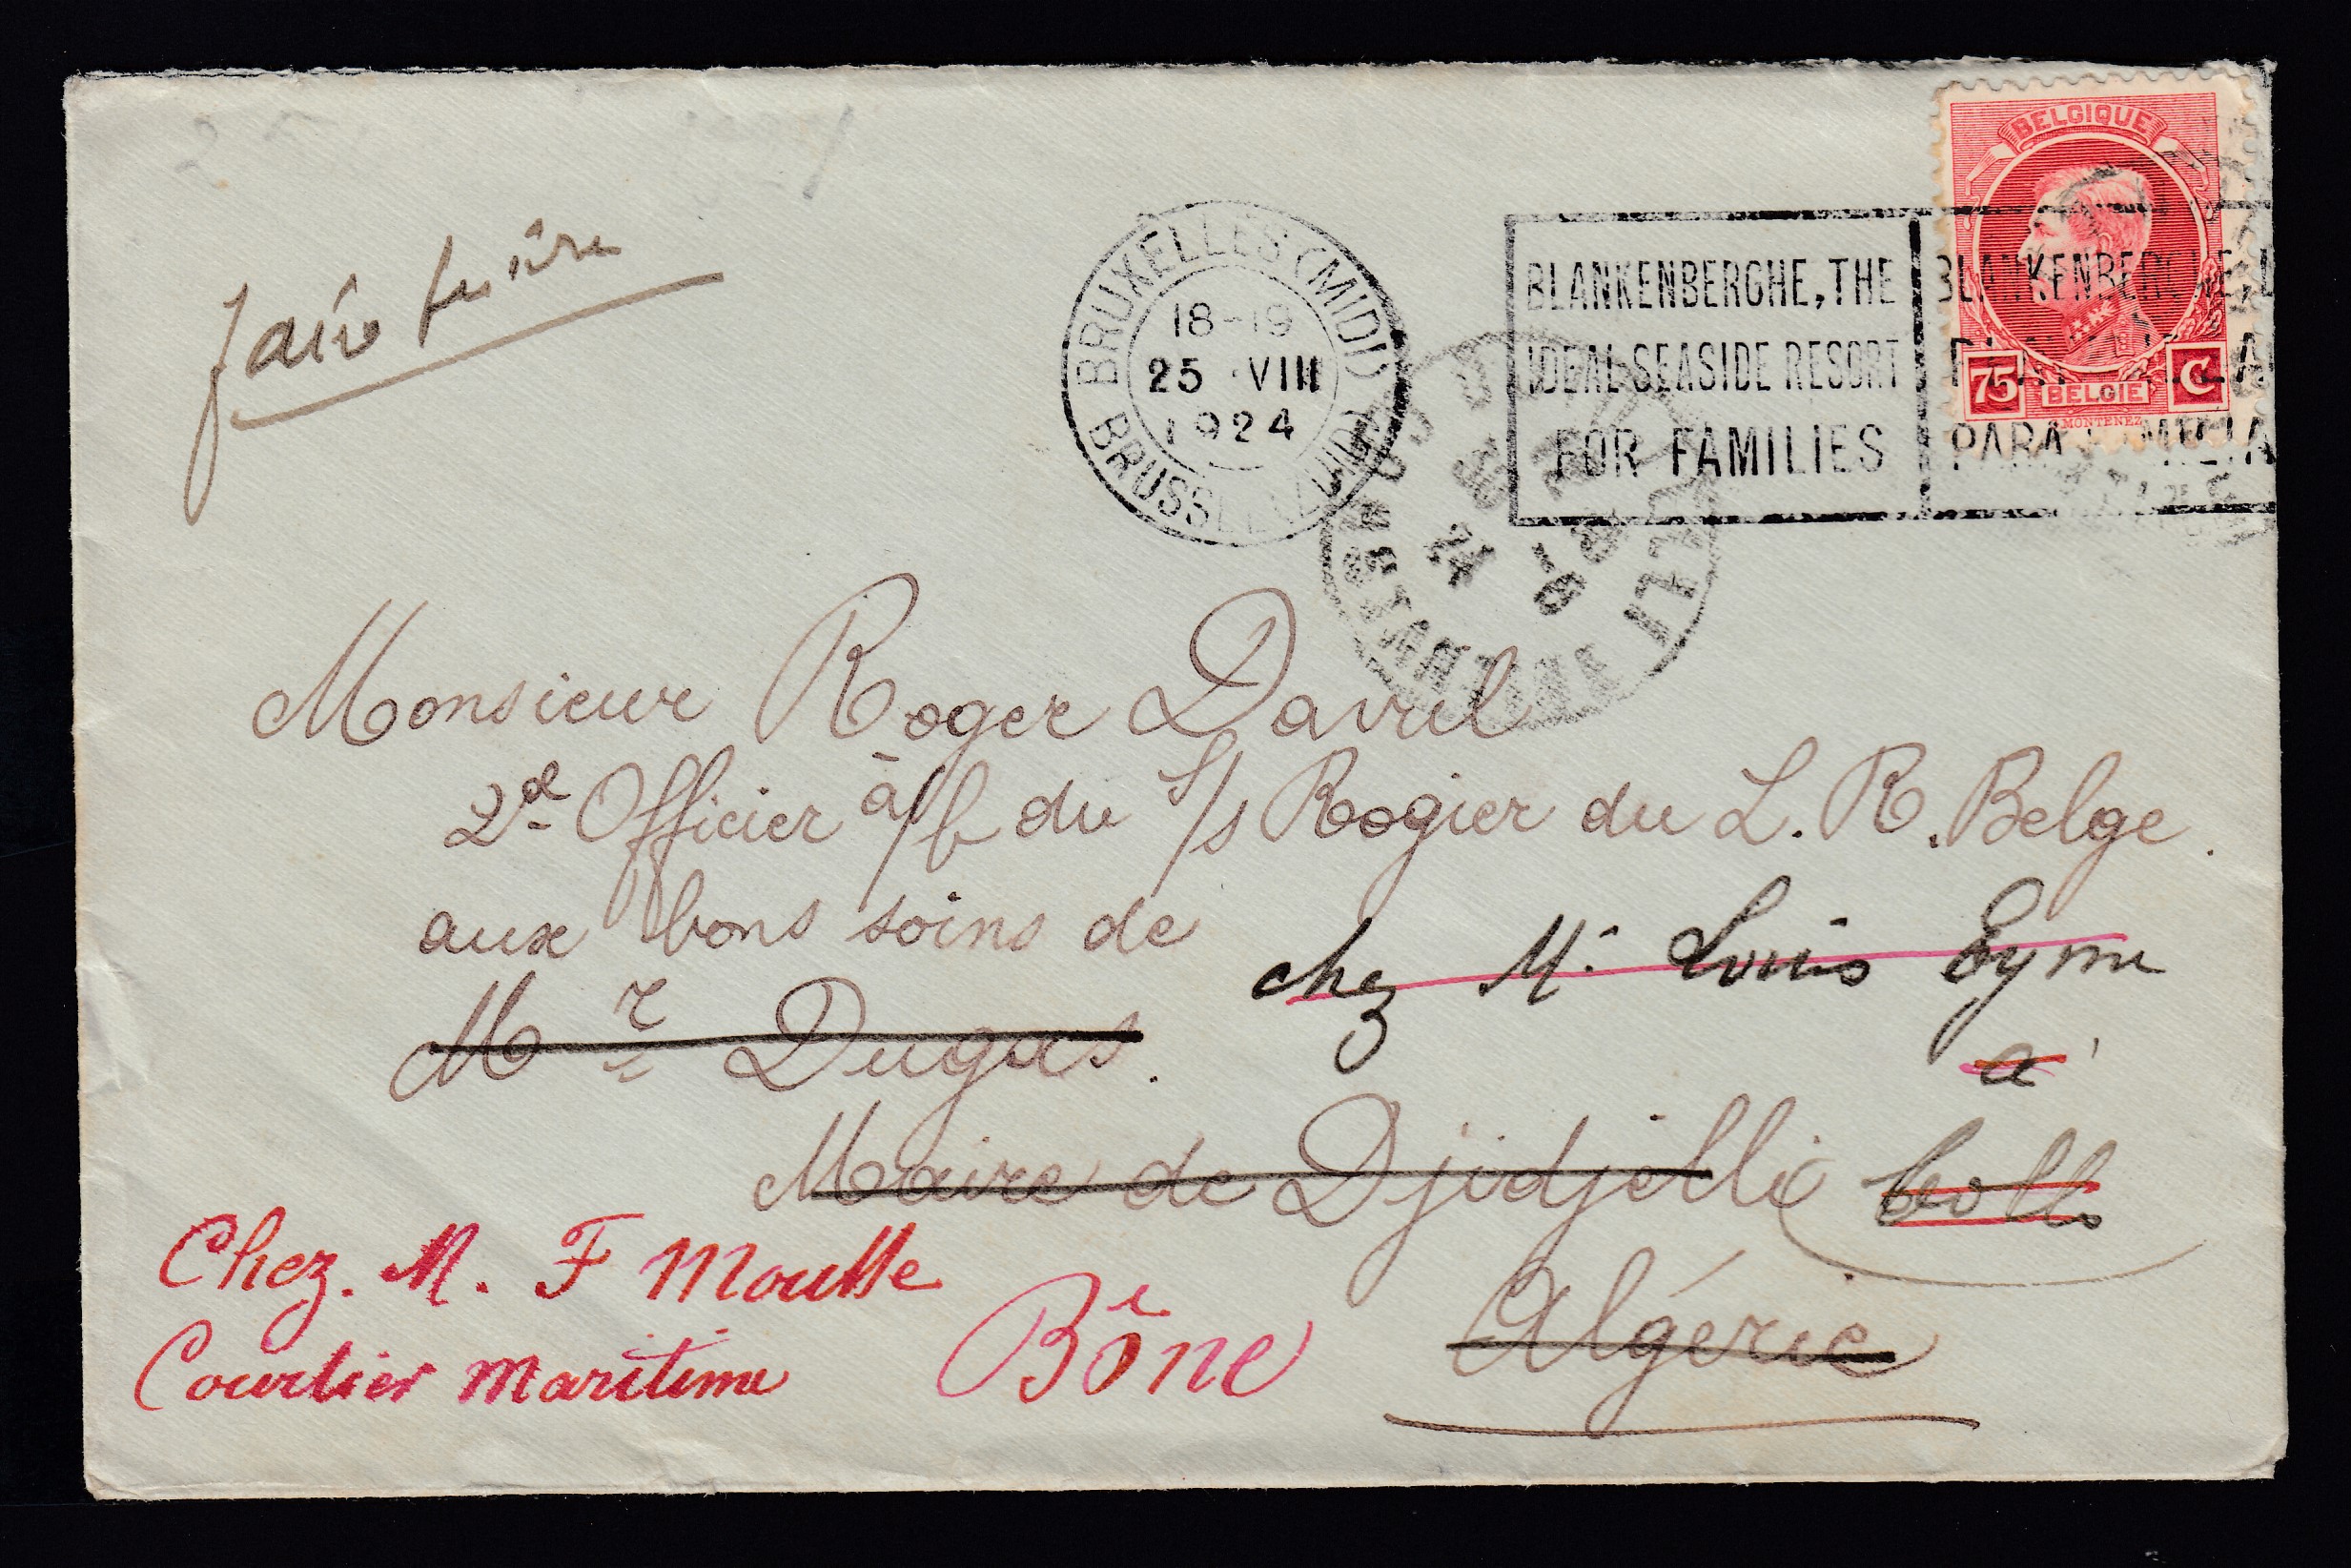 BELGIQUE
75 BELGIE C
MONTENEZ
BRUXELLES (MIDI)
18-19
25 VIII
1924
BRUSSEL (ZUID)
BLANKENBERGHE, THE
IDEAL SEASIDE RESORT
FOR FAMILIES
BLANKENBERGHE, L
PARA
24
faire suivre
Monsieur Roger Davril
2d Officier à/b du S/s Rogier du L. R. Belge.
aux bons soins de
chez Mr Louis Eyme
Mr Dugas.
à
Maire de Djidjelli
Collo
Chez. M. F
Courtier maritime
Bône
Algérie